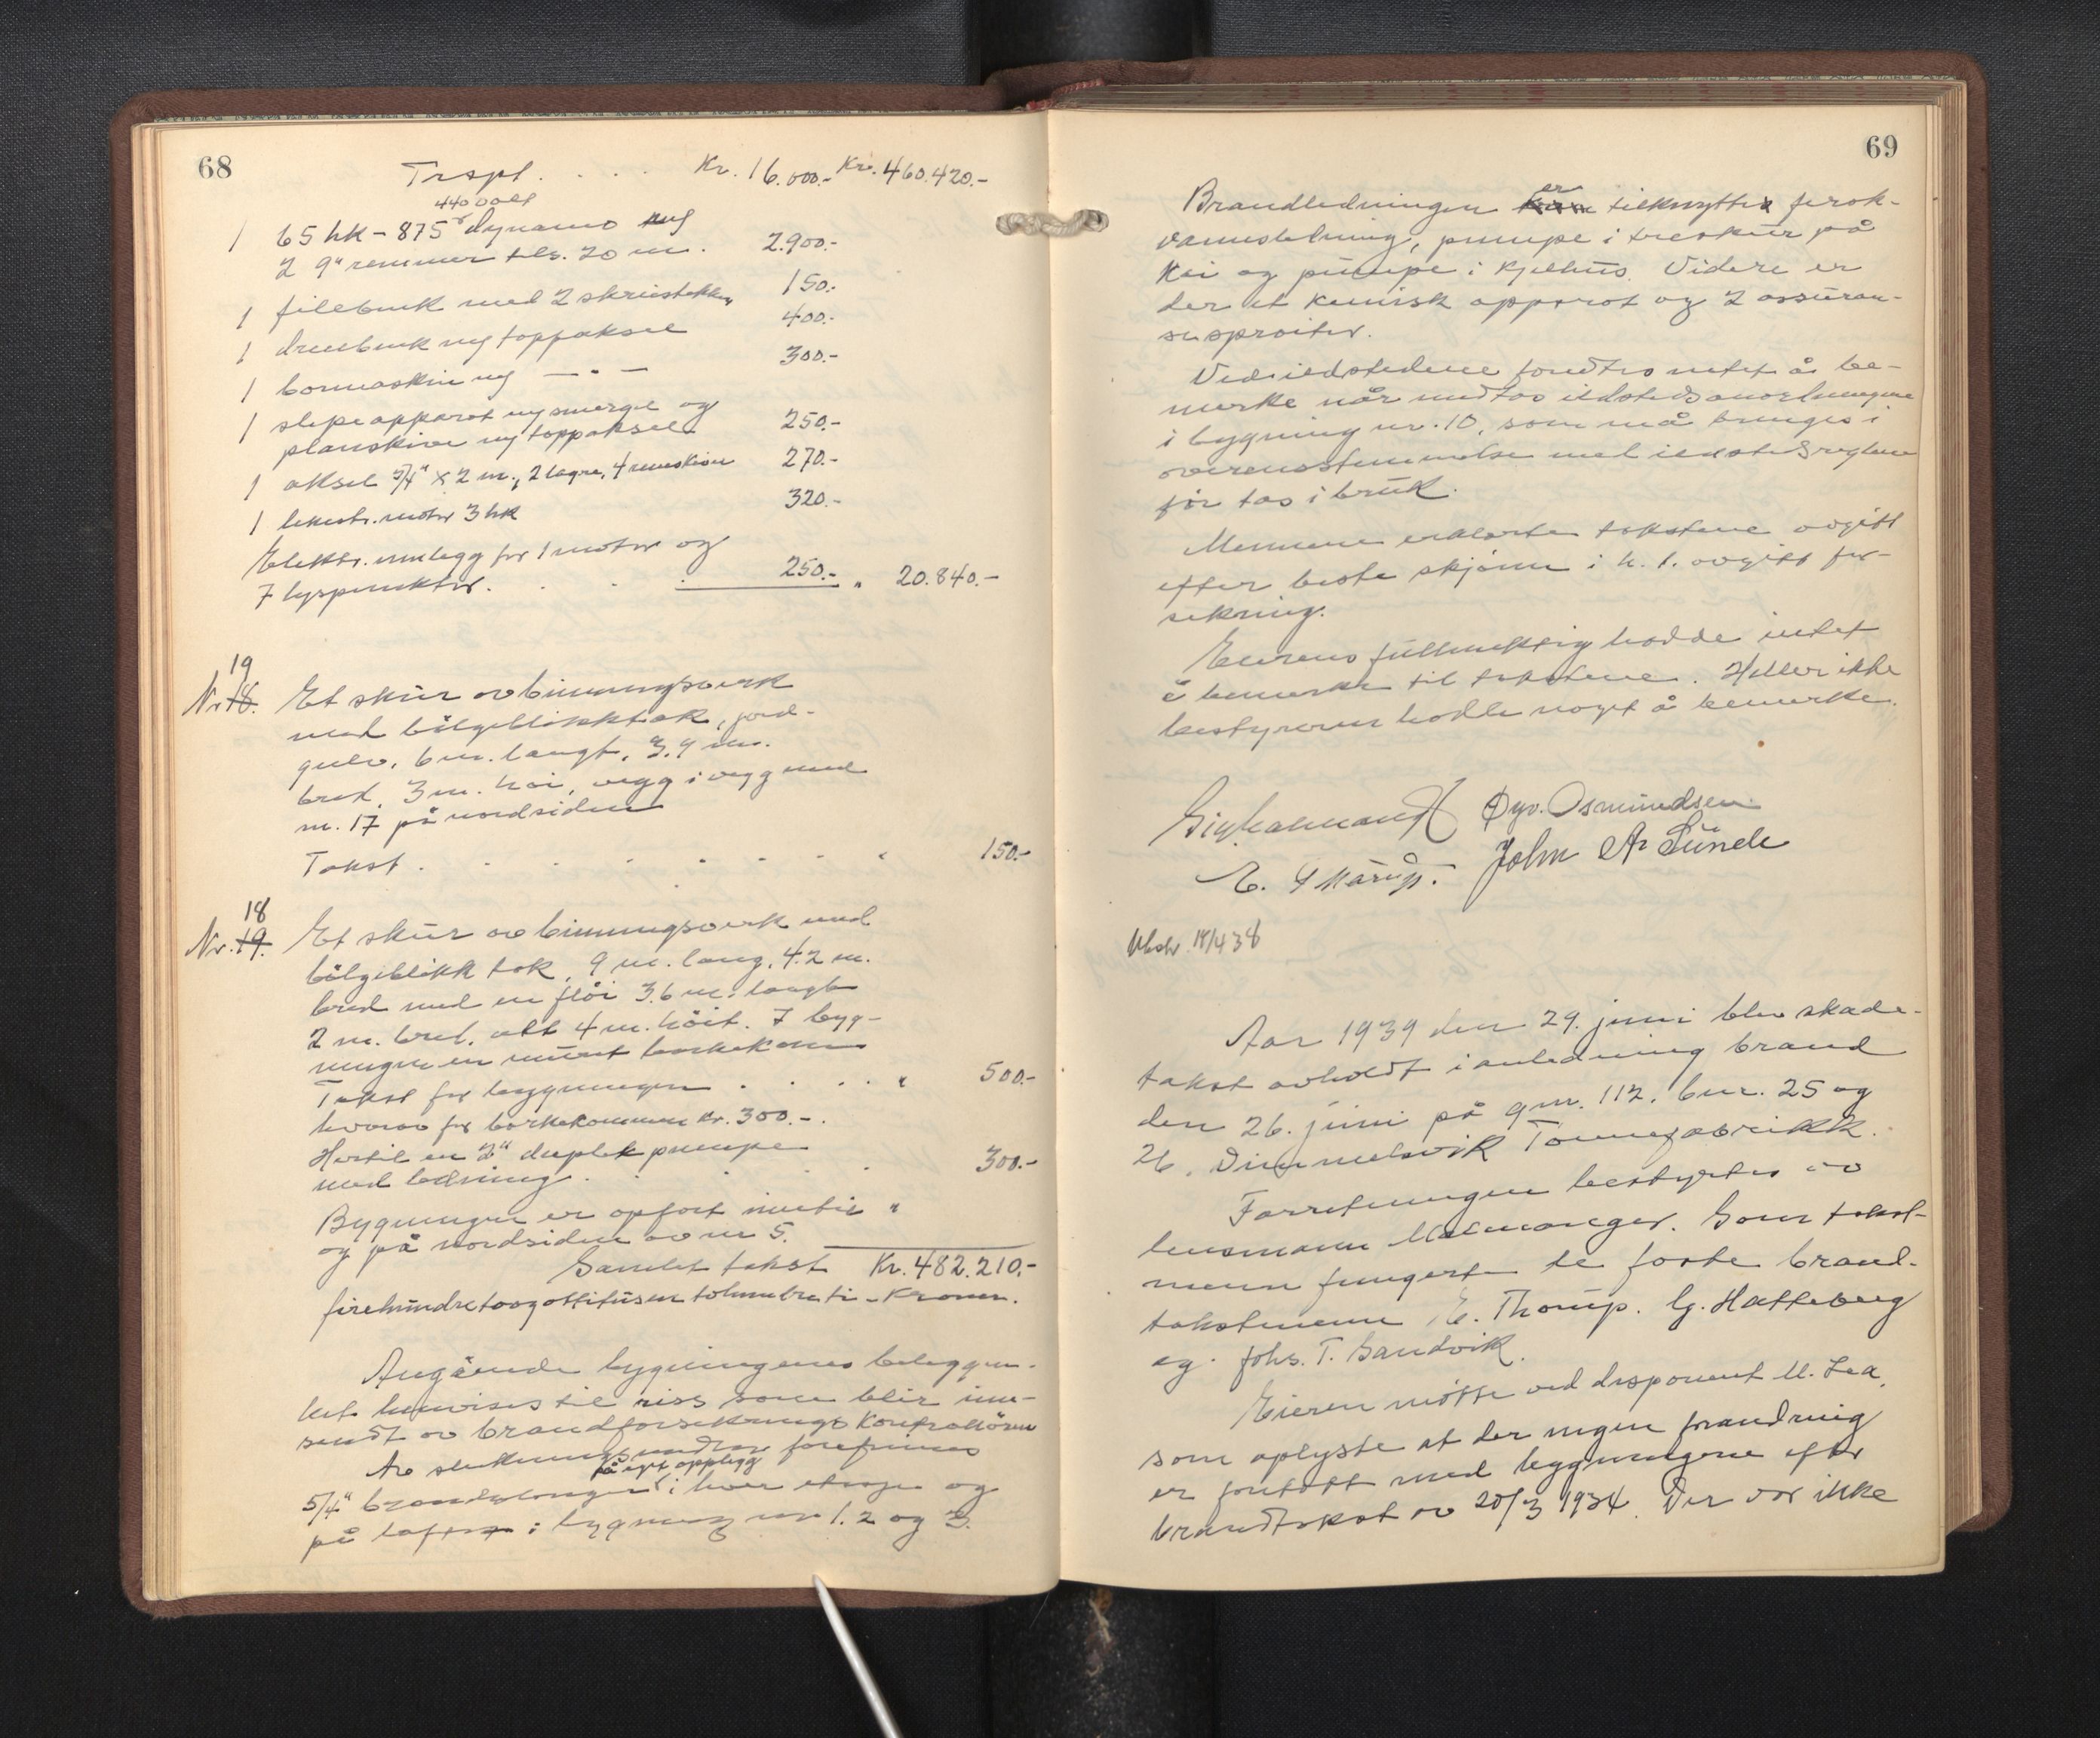 68
Trspt. . . . . Kr. 16.000.- Kr. 460.420.-
440 volt
1 65 hk - 875 r dynamo m/
2 9" remmer tils. 20 m. 2.900.-
1 filebenk med 2 skruestikker 150.-
1 dreiebenk m/ toppaksel 400.-
1 bormaskin m/ — " — 300.-
1 slipeapparat m/ smergel og
planskive m/ toppaksel 250.-
1 aksel 5/4" x 2 m., 2 lagre, 4 remskiver 270.-
1 motor 3 hk 320.-
Elektr. innlegg for 1 motor og
7 lyspunkter. . . . 250.- " 20.840.-
19
Nr. 18. Et skur av binningsverk
med bølgeblikktak, jord-
gulv, 6 m. langt, 3,9 m.
bred, 3 m. høi, vegg i vegg med
nr. 17 på nordsiden
Takst . . . . . . . " 150.-
18
Nr. 19. Et skur av binningsverk med
bølgeblikk tak, 9 m. lang, 4.2 m.
bred med en fløi 3.6 m. langt
2 m. bred, alt 4 m. høit. I byg-
ningen en muret barkekom
Takst for bygningen . . . . " 500.-
hvorav for barkekommen kr. 300.-.
Hertil en 2" duplek pumpe
med ledning . . . . 300.-
Bygningen er opført inntil "
og på nordsiden av nr 5.
Samlet takst Kr. 482.210.-
firehundretoogottitusen tohundreti - Kroner.
Angående bygningenes beliggen-
het henvises til riss som blir inn-
sendt av brandforsikrings kontrolløren
Av slukningsmidler forefinnes
på eget opplegg
5/4" brandslanger i hver etasje og
på loftet i bygning nr 1. 2 og 3.
69
er
Brandledningen kan tilknyttes fersk-
vannsledning, pumpe i treskur på
kai og pumpe i kjelhus. Videre er
der et kemisk apparat og 2 assuran-
sesprøiter.
Ved ildstedene fandtes intet å be-
merke når undtas ildstedsanordningene
i bygning nr. 10, som må bringes i
overensstemmelse med ildstedsreglene
før tas i bruk.
Mennene erklærte takstene avgitt
efter beste skjønn i h. t. avgitt for-
sikring.
Eierens fullmektig hadde intet
å bemerke til takstene. Heller ikke
bestyreren hadde noget å bemerke.
Øyv. Osmundsen
E. Thorup. John A. Lunde
Utskr. 19/4 38
Aar 1939 den 29. juni blev skade-
takst avholdt i anledning brand
den 26. juni på gnr. 112, bnr. 25 og
26, Dimmelsvik Tønnefabrikk.
Forretningen bestyrtes av
lensmann Malmanger. Som takst-
menn fungerte de faste brand-
takstmenn, E. Thorup. G. Hatteberg
og Johs. T. Sandvik.
Eieren møtte ved disponent M. Lea,
som oplyste at der ingen forandring
er foretatt med bygningene efter
brandtakst av 20/3 1934. Der var ikke